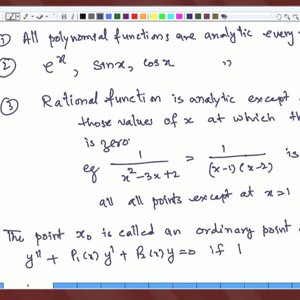 ① All polynomial functions are analytic every
② eˣ, sinx, cosx "
③ Rational function is analytic except
those values of x at which th
is zero
eg 1/(x²-3x+2) = 1/((x-1)(x-2)) is
all all points except at x=1
The point x₀ is called an ordinary point
y'' + P₁(x) y' + P₂(x) y = 0 if